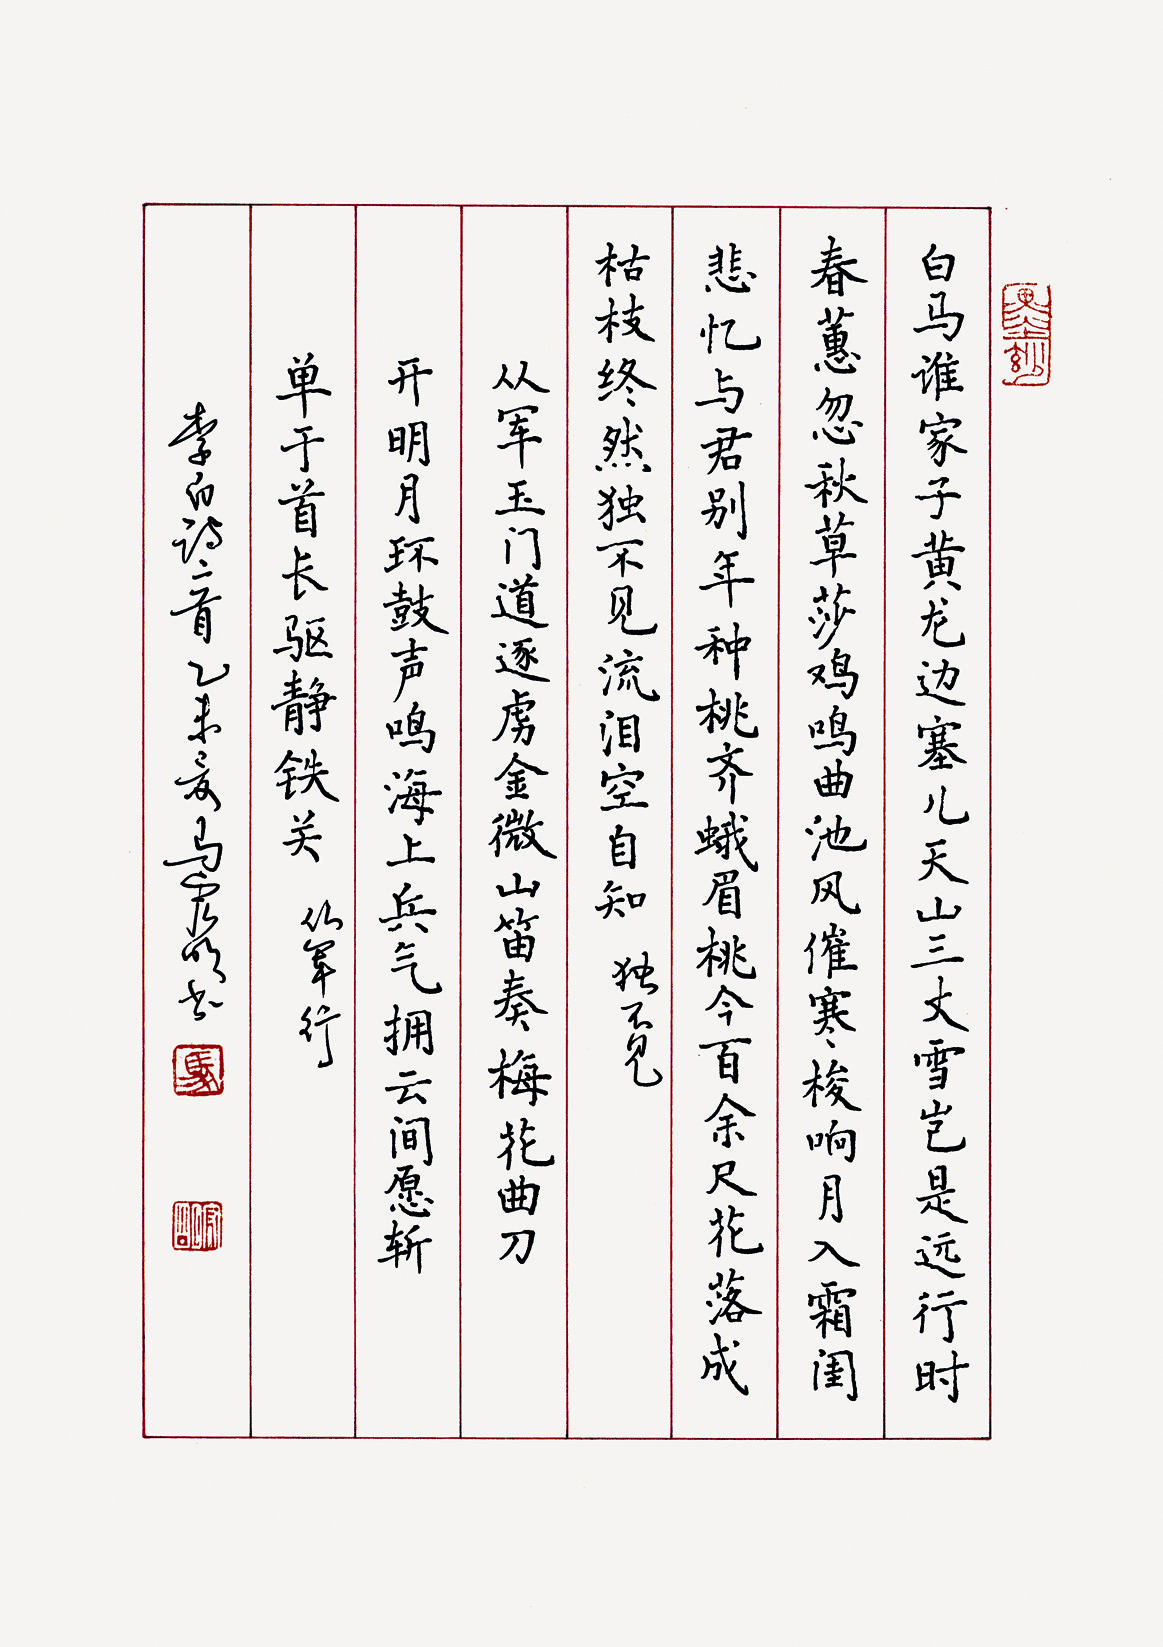 白马谁家子黄龙边塞儿天山三丈雪岂是远行时
春蕙忽秋草莎鸡鸣曲池风催寒梭响月入霜闺
悲忆与君别年种桃齐蛾眉桃今百余尺花落成
枯枝终然独不见流泪空自知 独不见
从军玉门道逐虏金微山笛奏梅花曲刀
开明月环鼓声鸣海上兵气拥云间愿斩
单于首长驱静铁关 从军行
李白诗二首乙未夏马 书
馬